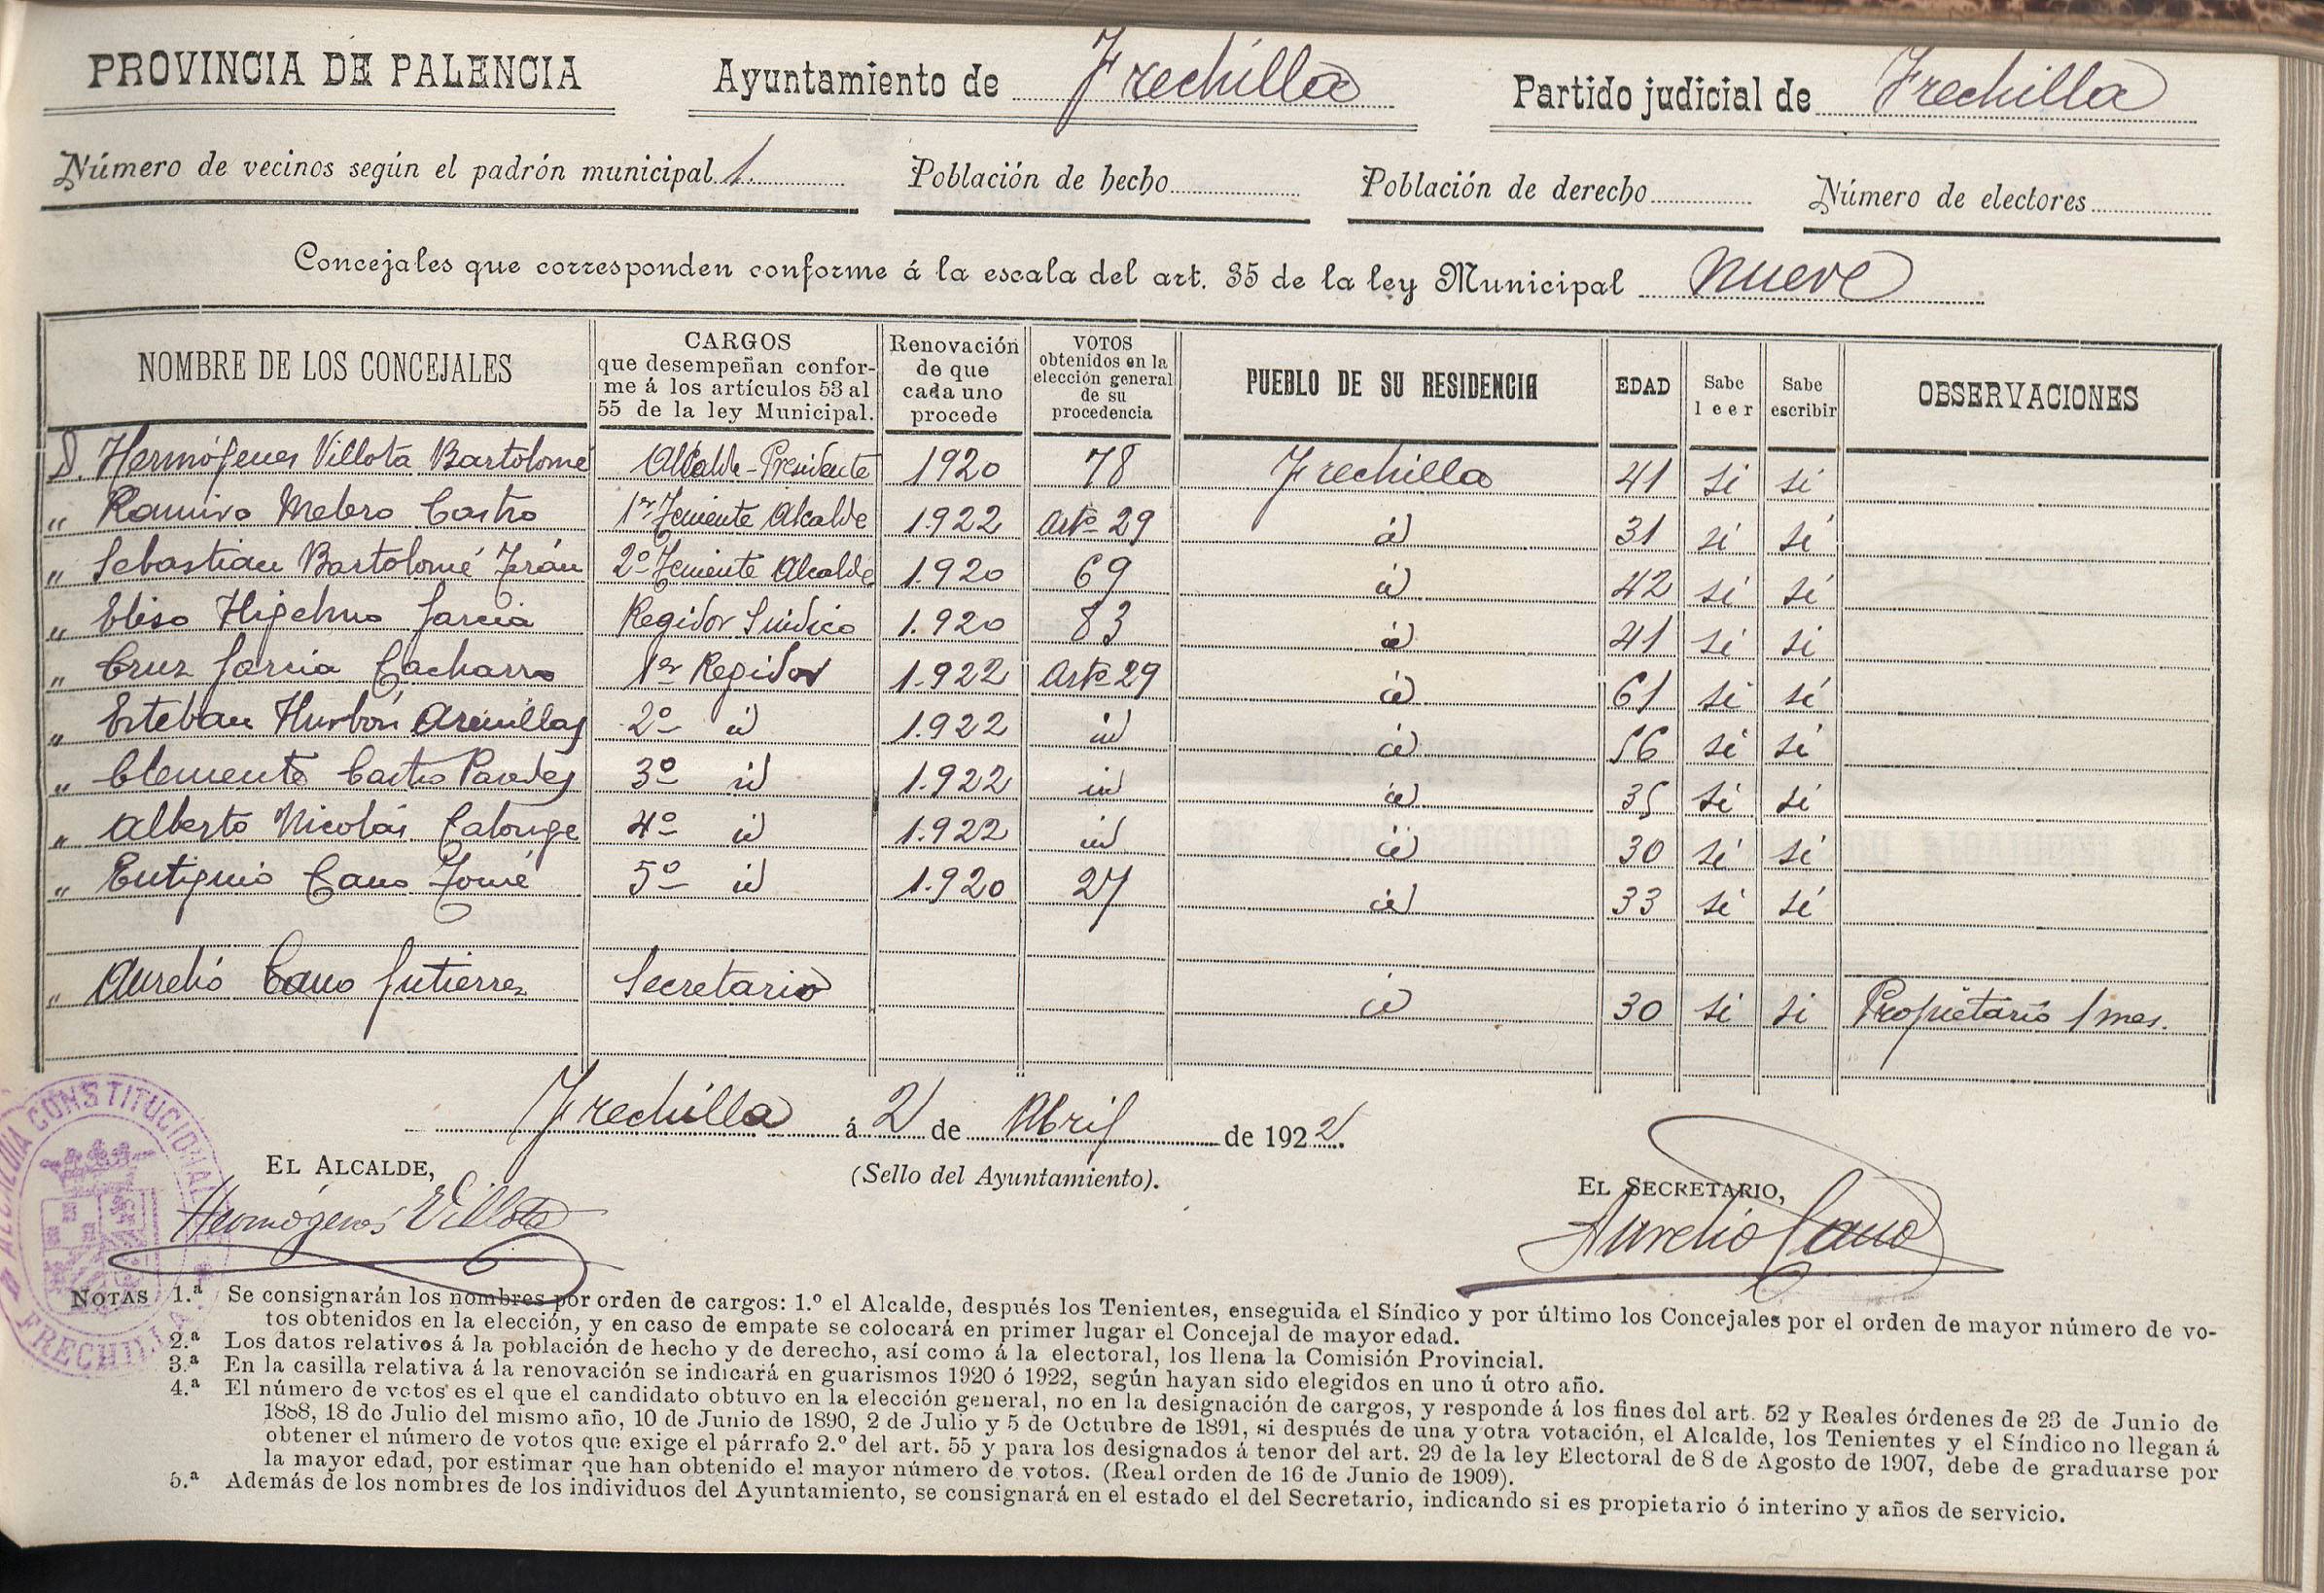 PROVINCIA DE PALENCIA Ayuntamiento de Frechilla Partido judicial de Frechilla
Número de vecinos según el padrón municipal 1. Población de hecho Población de derecho Número de electores
Concejales que corresponden conforme á la escala del art. 35 de la ley Municipal nueve
NOMBRE DE LOS CONCEJALES
CARGOS
que desempeñan confor-
me á los artículos 53 al
55 de la ley Municipal.
Renovación
de que
cada uno
procede
VOTOS
obtenidos en la
elección general
de su
procedencia
PUEBLO DE SU RESIDENCIA
EDAD
Sabe
leer
Sabe
escribir
OBSERVACIONES
D. Hermógenes Villota Bartolomé Alcalde-Presidente 1920 78 Frechilla 41 si si
" Ramiro Melero Castro 1er Teniente Alcalde 1.922 Arto 29 id 31 si si
" Sebastian Bartolomé Terán 2º Teniente Alcalde 1.920 69 id 42 si si
" Eliso Higelmo Garcia Regidor Sindico 1.920 83 id 41 si si
" Cruz Garcia Cacharro 1er Regidor 1.922 Arto 29 id 61 si si
" Esteban Hurbón Arenillas 2º id 1.922 id id 56 si si
" Clemente Castro Paredes 3º id 1.922 id id 35 si si
" Alberto Nicolás Calonge 4º id 1.922 id id 30 si si
" Eutiquio Cano Tomé 5º id 1.920 27 id 33 si si
" Aurelio Cano Gutierrez Secretario id 30 si si Propietario 1 mes.
Frechilla á 2 de Abril de 1922.
EL ALCALDE, (Sello del Ayuntamiento). EL SECRETARIO,
Hermógenes Villota Aurelio Cano
ALCALDIA CONSTITUCIONAL
FRECHILLA
NOTAS 1.ª Se consignarán los nombres por orden de cargos: 1.º el Alcalde, después los Tenientes, enseguida el Síndico y por último los Concejales por el orden de mayor número de vo-
tos obtenidos en la elección, y en caso de empate se colocará en primer lugar el Concejal de mayor edad.
2.ª Los datos relativos á la población de hecho y de derecho, así como á la electoral, los llena la Comisión Provincial.
3.ª En la casilla relativa á la renovación se indicará en guarismos 1920 ó 1922, según hayan sido elegidos en uno ú otro año.
4.ª El número de votos es el que el candidato obtuvo en la elección general, no en la designación de cargos, y responde á los fines del art. 52 y Reales órdenes de 23 de Junio de
1888, 18 de Julio del mismo año, 10 de Junio de 1890, 2 de Julio y 5 de Octubre de 1891, si después de una y otra votación, el Alcalde, los Tenientes y el Síndico no llegan á
obtener el número de votos que exige el párrafo 2.º del art. 55 y para los designados á tenor del art. 29 de la ley Electoral de 8 de Agosto de 1907, debe de graduarse por
la mayor edad, por estimar que han obtenido el mayor número de votos. (Real orden de 16 de Junio de 1909).
5.ª Además de los nombres de los individuos del Ayuntamiento, se consignará en el estado el del Secretario, indicando si es propietario ó interino y años de servicio.